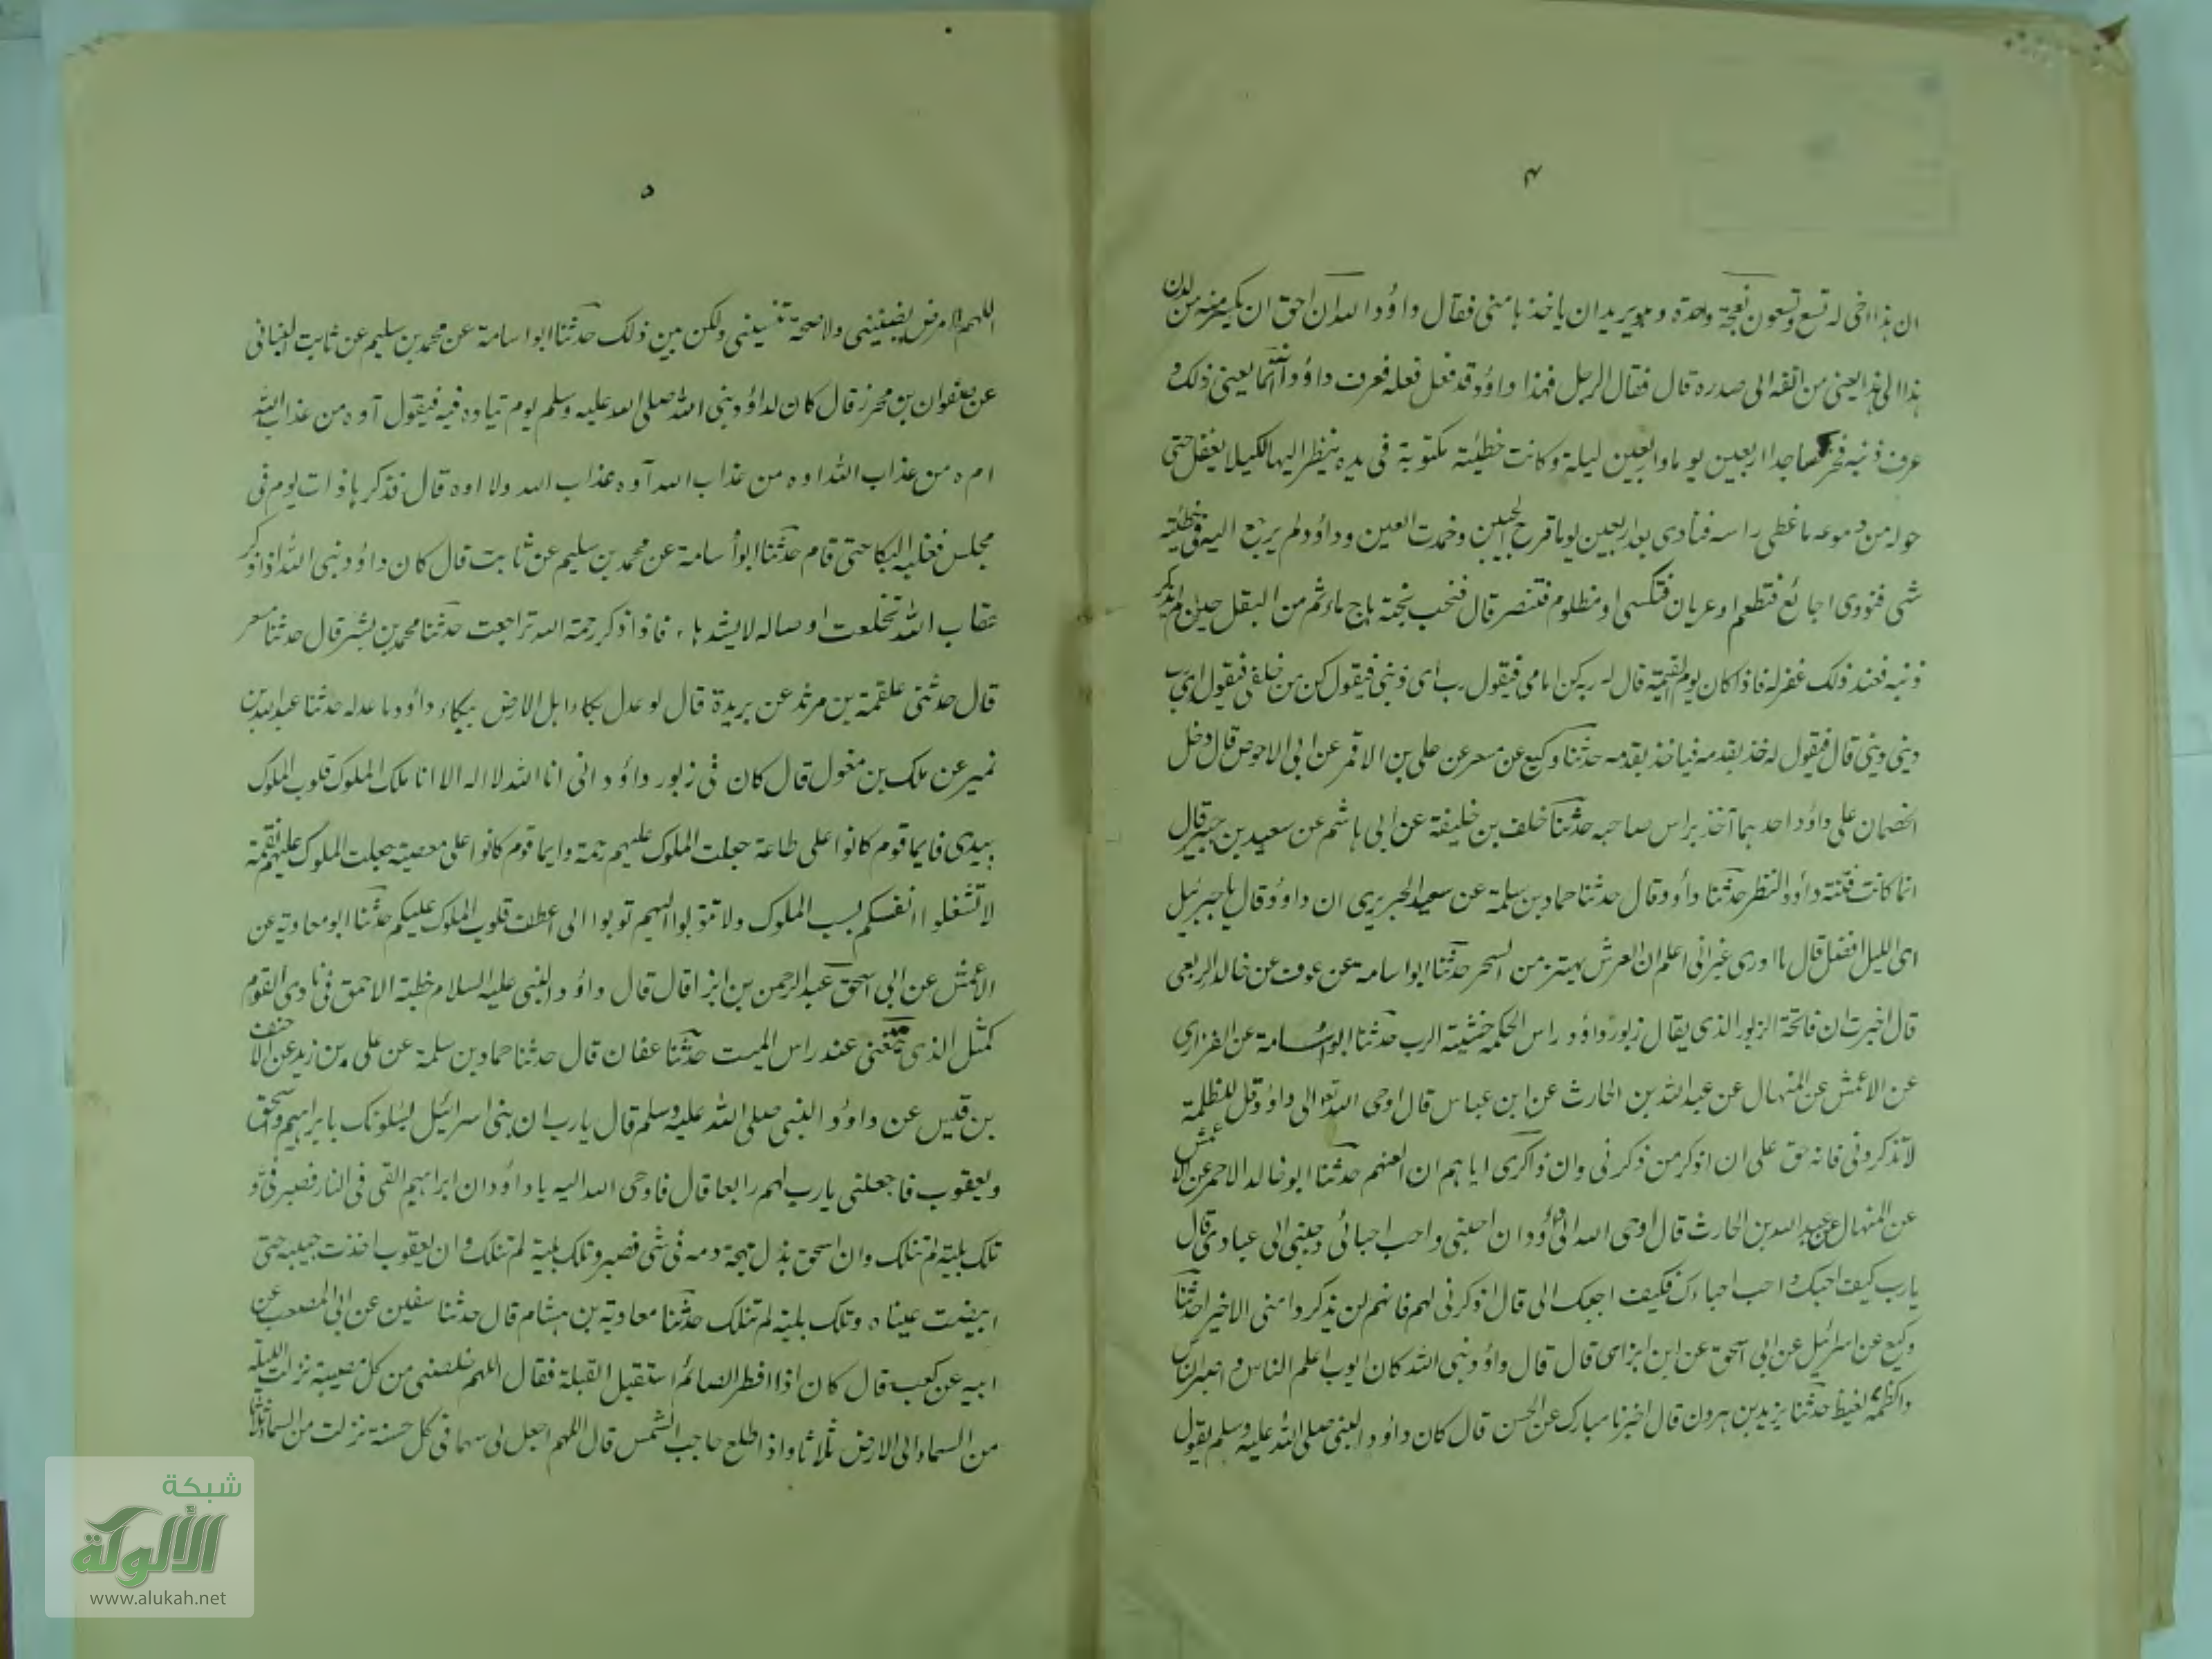 ۴
ان هذا اخى له تسع وتسعون نعجة واحدة وهو يريد ان ياخذها منى فقال داؤد الله ان احق ان يكسر منه من لدن
هذا الى هذا يعنى من انفه الى صدره قال فقال الرجل فهذا داؤد قد فعل فعله فعرف داؤد انما يعنى ذلك و
عرف ذنبه فخر ساجدا اربعين يوما واربعين ليلة وكانت خطيئته مكتوبة فى يده ينظر اليها لكيلا يغفل حتى
حوله من دموعه ما غطى راسه فنادى بعد اربعين يوما قرح الجبين وجمدت العين وداؤد لم يرجع اليه فى خطيئته
شى فنودى اجائع فتطعم او عريان فتكسى او مظلوم فتنصر قال فنحب نحبة هاج ما ثم من البقل حين لم يذكر
ذنبه فعند ذلك غفر له فاذا كان يوم القيمة قال له ربه كن امامى فيقول رب اى ذنبى فيقول كن من خلفى فيقول اى رب
ذنبى ذنبى قال فيقول له خذ بقدمه فياخذ بقدمه حدثنا وكيع عن مسعر عن على بن الاقمر عن ابى الاحوص قال دخل
الخصمان على داؤد احدهما آخذ براس صاحبه حدثنا خلف بن خليفة عن ابى هاشم عن سعيد بن جبير قال
انما كانت فتنة داؤد النظر حدثنا داؤد قال حدثنا حماد بن سلمة عن سعيد الجريرى ان داؤد قال يا جبرئيل
اى الليل افضل قال ما ادرى غير انى اعلم ان العرش يهتز من السحر حدثنا ابو اسامة عن عوف عن خالد الربعى
قال اخبرت ان فاتحة الزبور الذى يقال زبور داؤد راس الحكمة خشية الرب حدثنا ابو اسامة عن الفزارى
عن الاعمش عن المنهال عن عبد الله بن الحارث عن ابن عباس قال اوحى الله تعالى الى داؤد قل للظلمة
لا تذكرونى فانه حق على ان اذكر من ذكرنى وان ذاكرى اياهم ان العنهم حدثنا ابو خالد الاحمر عن الاعمش
عن المنهال عن عبد الله بن الحارث قال اوحى الله الى داؤد ان احبنى واحب احبائى وحببنى الى عبادى قال
يارب كيف احبك واحب احباءك فكيف احببك الى قال اذكرنى لهم فانهم لن يذكروا منى الا خيرا حدثنا
وكيع عن اسرائيل عن ابى اسحق عن ابن ابزى قال قال داؤد نبى الله كان ايوب اعلم الناس واصبر الناس
واكظمه لغيظ حدثنا يزيد بن هرون قال اخبرنا مبارك عن الحسن قال كان داؤد النبى صلى الله عليه وسلم يقول
۵
اللهم لا مرض يضنينى ولا صحة تنسينى ولكن بين ذلك حدثنا ابو اسامة عن محمد بن سليم عن ثابت البنانى
عن صفوان بن محرز قال كان لداؤد نبى الله صلى الله عليه وسلم يوم يتاوه فيه فيقول آوه من عذاب الله
اوه من عذاب الله اوه من عذاب الله آوه عذاب الله ولا اوه قال فذكرها ذات يوم فى
مجلس فغلبه البكا حتى قام حدثنا ابو أسامة عن محمد بن سليم عن ثابت قال كان داؤد نبى الله اذا ذكر
عقاب الله تخلعت اوصاله لا يشدها، فاذا ذكر رحمة الله تراجعت حدثنا محمد بن بشر قال حدثنا مسعر
قال حدثنى علقمة بن مرثد عن بريدة قال لو عدل بكاء اهل الارض ببكاء داؤد ما عدله حدثنا عبد الله بن
نمير عن ملك بن مغول قال كان فى زبور داؤد انى انا الله لا اله الا انا ملك الملوك قلوب الملوك
بيدى فايما قوم كانوا على طاعة جعلت الملوك عليهم رحمة وايما قوم كانوا على معصية جعلت الملوك عليهم نقمة
لا تشغلوا انفسكم بسب الملوك ولا تتوبوا اليهم توبوا الى اعطف قلوب الملوك عليكم حدثنا ابو معاوية عن
الاعمش عن ابى اسحق عبد الرحمن بن ابزا قال قال داؤد النبى عليه السلام خطبة الاحمق فى نادى القوم
كمثل الذى يتغنى عند راس الميت حدثنا عفان قال حدثنا حماد بن سلمة عن على بن زيد عن الاحنف
بن قيس عن داؤد النبى صلى الله عليه وسلم قال يارب ان بنى اسرائيل يسلونك بابراهيم واسحق
ويعقوب فاجعلنى يارب لهم رابعا قال فاوحى الله اليه يا داؤد ان ابراهيم القى فى النار فصبر فى و
تلك بلية لم تنلك وان اسحق بذل مهجة دمه فى شى فصبر وتلك بلية لم تنلك وان يعقوب اخذت حبيبه حتى
ابيضت عيناه وتلك بلية لم تنلك حدثنا معاوية بن هشام قال حدثنا سفين عن ابى المصعب عن
ابيه عن كعب قال كان اذا افطر الصائم استقبل القبلة فقال اللهم خلصنى من كل مصيبة نزلت الليلة
من السماء الى الارض ثلاثا واذا طلع حاجب الشمس قال اللهم اجعل لى سهما فى كل حسنة نزلت من السماء ثلاثا
شبكة
الألوكة
www.alukah.net